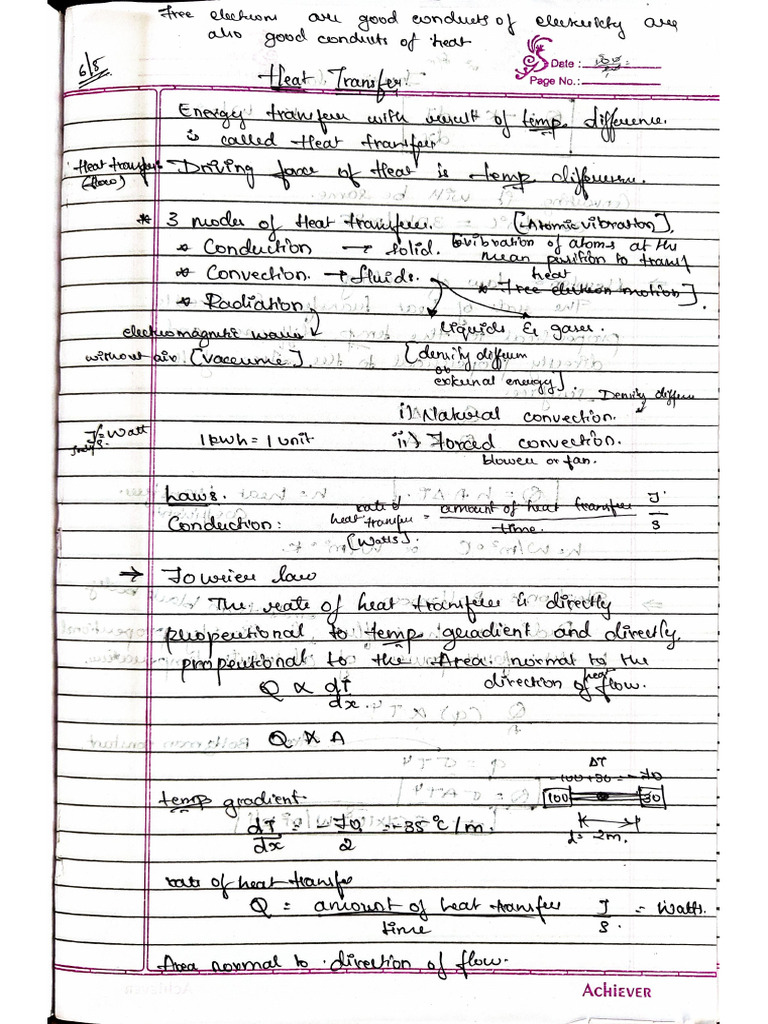 Free electrons are good conducts of electricity are
also good conducts of heat
6/8
Date :
Page No.:
Heat Transfer
Energy transfer with result of temp difference.
is called Heat transfer
Heat transfer (flow)
Driving force of Heat is temp difference.
* 3 modes of Heat transfer. [Atomic vibration],
* Conduction → solid. vibration of atoms at the
mean position to transf
heat
* Convection. → fluids. * Free electron motion].
* Radiation
electromagnetic waves liquids & gases.
without air [vaccume]. [density differen
or
external energy].
i) Natural convection. Density differen
J/s = Watt 1 kwh = 1 unit ii) Forced convection.
blower or fan.
Laws.
Conduction: rate of heat transfer = amount of heat transfer / time. J/S
[Watts].
→ Fourier law
The rate of heat transfer is directly
propotional to temp gradient and directly
propotional to the Area normal to the
direction of heat flow.
Q ∝ dT/dx.
Q ∝ A
ΔT
-100+30 = -70
100 30
temp gradient.
dT/dx = -70/2 = -35°C/m.
d = 2m.
rate of heat transfer
Q = amount of heat transfer / time J/S. = Watts.
Area normal to direction of flow.
ACHIEVER